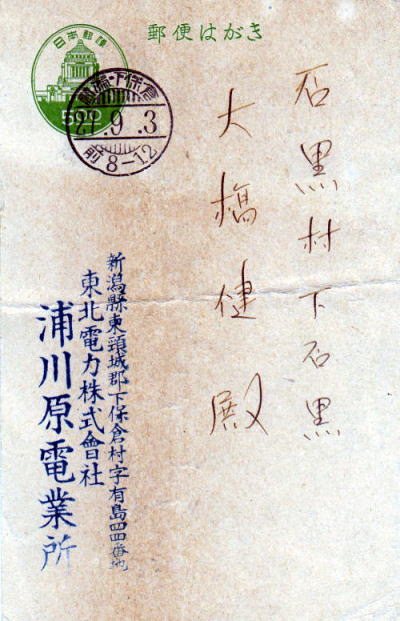 郵便はがき
日本郵便
500
新潟・下保倉
27.9.3
前8-12
石黒村下石黒
大橋健殿
新潟縣東頸城郡下保倉村字有島四四番地
東北電力株式會社
浦川原電業所